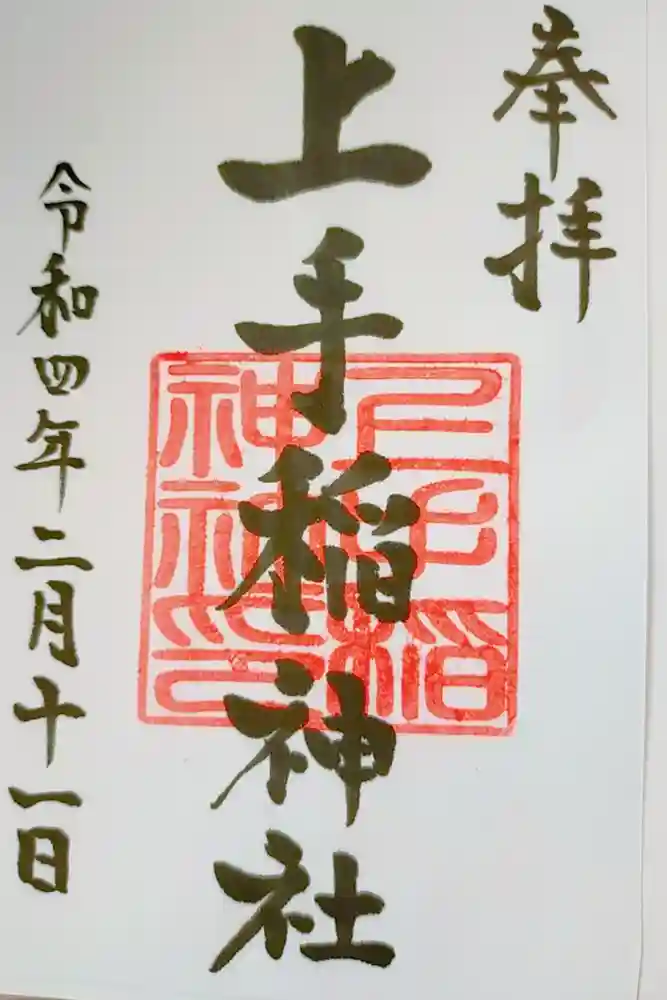 奉拝
上手稲神社
令和四年二月十一日
上手稲
神社印